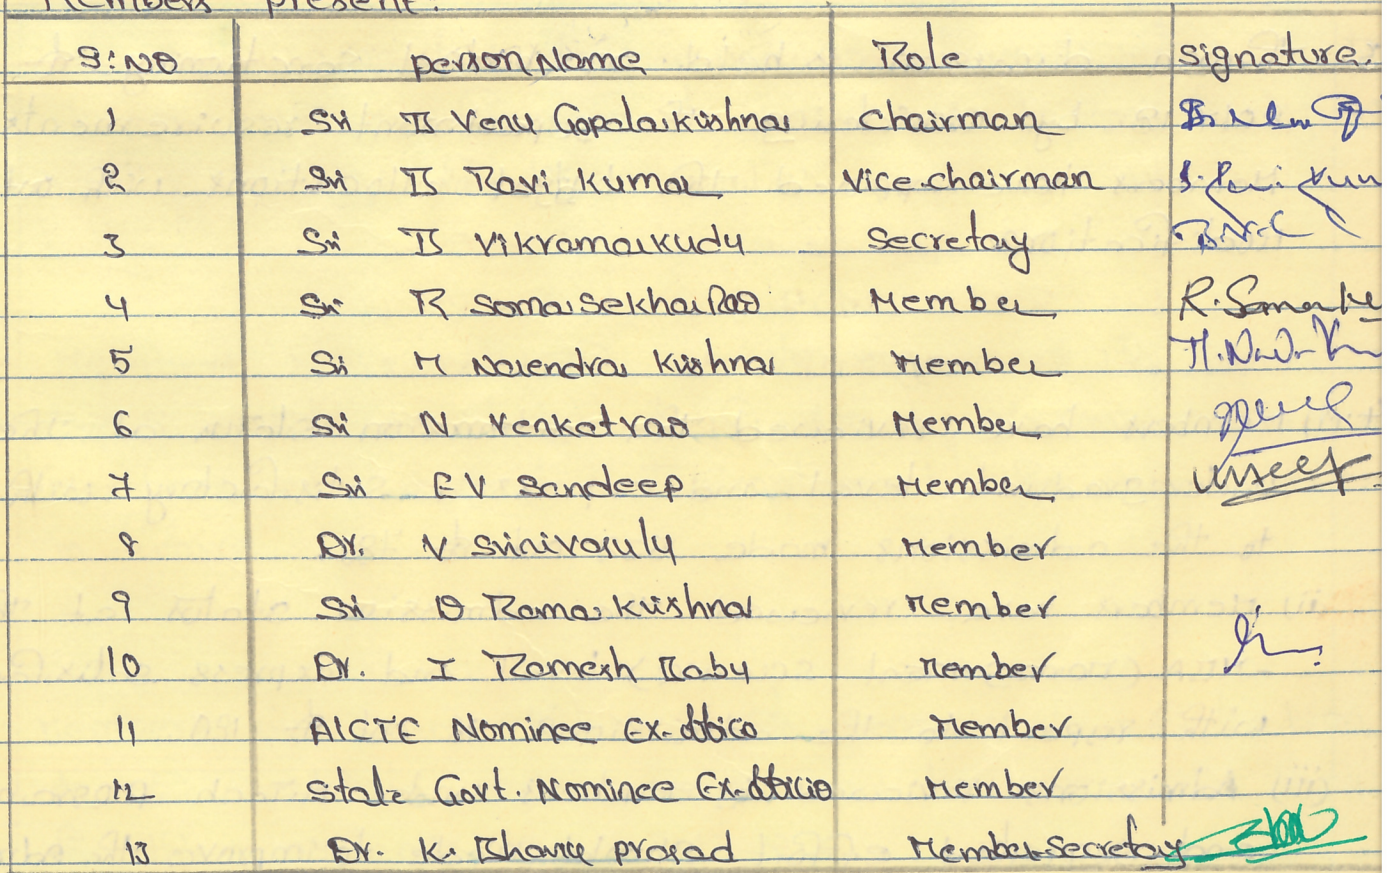 Members present.
S:NO person Name Role Signature.
1 Sri B Venu Gopalakrishna Chairman
2 Sri B Ravi Kumar Vice.chairman
3 Sri B Vikramarkudu Secretary
4 Sri R Somasekhar Rao Member R.Somasekhe
5 Sri M Narendra Krishna Member
6 Sri N Venkatrao Member
7 Sri E V Sandeep Member
8 Dr. V Srinivasulu Member
9 Sri D Rama Krishna Member
10 Dr. I Ramesh Babu Member
11 AICTE Nominee Ex-officio Member
12 State Govt. Nominee Ex-officio Member
13 Dr. K. Bhanu prasad Member-Secretary